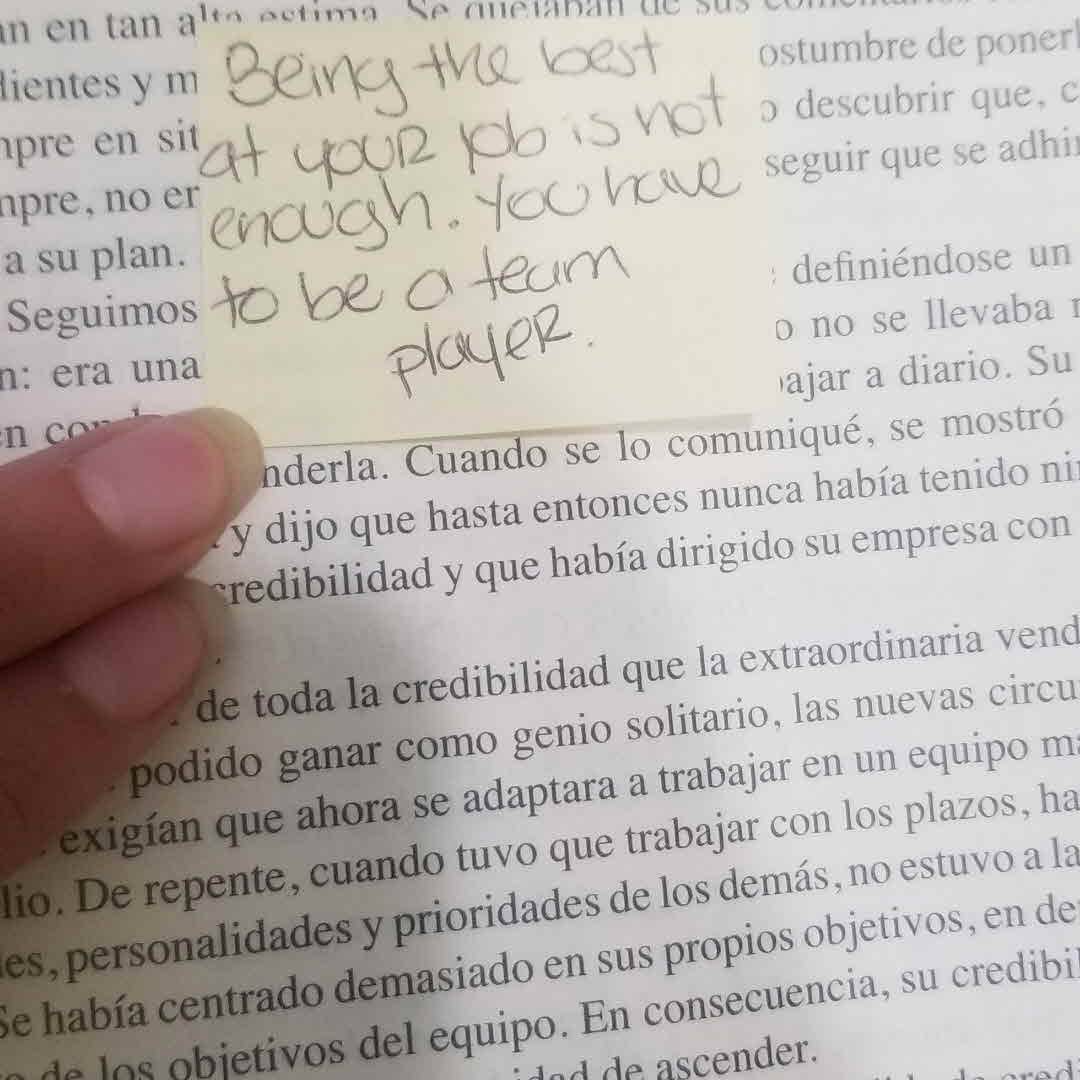 en tan alta estima. Se quejaban de sus
Being the best
at your job is not
enough. You have
to be a team
player.
y m
ostumbre de poner
en sit
descubrir que, c
no er
seguir que se adhi
a su plan.
Seguimos
: definiéndose un
o no se llevaba
n: era una
ajar a diario. Su
nderla. Cuando se lo comuniqué, se mostró
y dijo que hasta entonces nunca había tenido ni
credibilidad y que había dirigido su empresa con
de toda la credibilidad que la extraordinaria vend
podido ganar como genio solitario, las nuevas circu
exigían que ahora se adaptara a trabajar en un equipo m
lio. De repente, cuando tuvo que trabajar con los plazos, ha
es, personalidades y prioridades de los demás, no estuvo a la
Se había centrado demasiado en sus propios objetivos, en de
de los objetivos del equipo. En consecuencia, su credibil
de ascender.